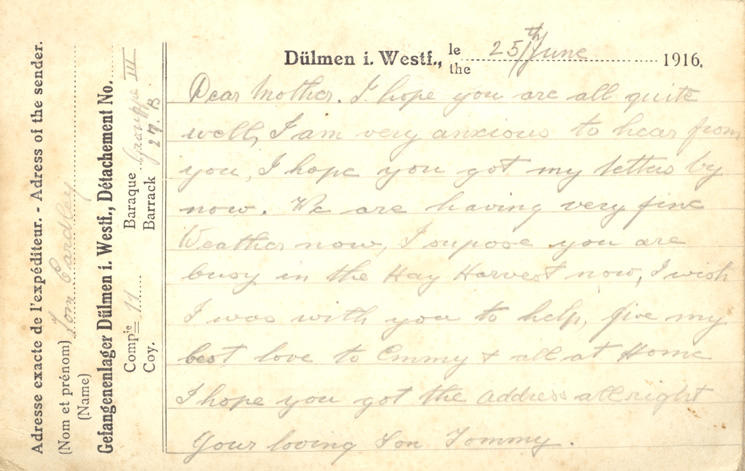 Dülmen i. Westf., le / the 25th June 1916.
Dear Mother. I hope you are all quite
well, I am very anxious to hear from
you, I hope you got my letters by
now. We are having very fine
Weather now, I supose you are
busy in the Hay Harvest now, I wish
I was with you to help, give my
best love to Emmy & all at Home
I hope you got the address allright
Your loving Son Tommy.
Adresse exacte de l'expéditeur. - Adress of the sender.
(Nom et prénom) Tom
(Name)
Gefangenenlager Dülmen i. Westf., Détachement No.
Compie 11 Baraque Gruppe III
Coy. Barrack 27.B